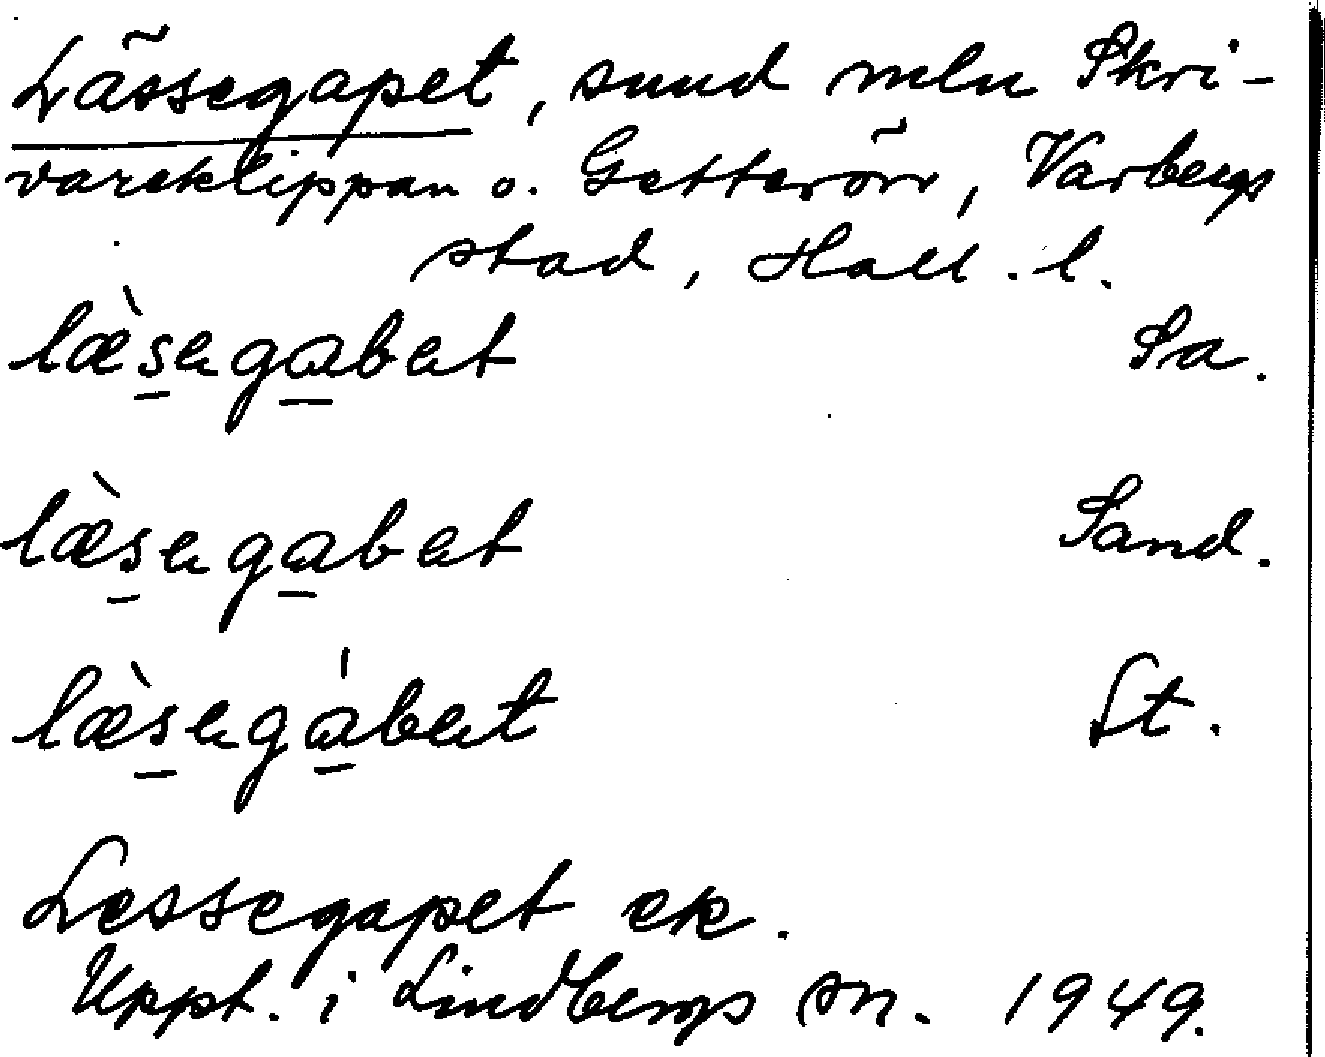 Lässegapet, sund mln Skri-
vareklippan o. Getterörr, Varbergs
stad, Hall. l.
læ̀segabet Sa.
læ̀segabet Sand.
læ̀segábet St.
Lessegapet ek.
Uppt. i Lindbergs sn. 1949.